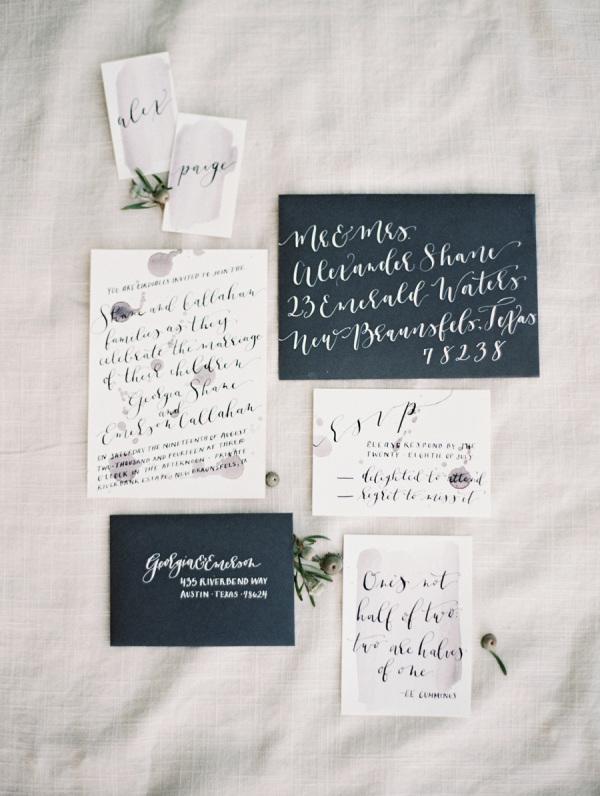 alex
paige
Mr & Mrs.
Alexander Shane
23 Emerald Waters
New Braunsfels, Texas
78238
YOU ARE CORDIALLY INVITED TO JOIN THE
Shane and Callahan
families as they
celebrate the marriage
of their children
Georgia Shane
and
Emerson Callahan
ON SATURDAY THE NINETEENTH OF AUGUST
TWO-THOUSAND AND FOURTEEN AT THREE
O'CLOCK IN THE AFTERNOON. PRIVATE
RIVERBANK ESTATE, NEW BRAUNSFELS,
rsvp
PLEASE RESPOND BY THE
TWENTY EIGHTH OF JULY
— delighted to attend
— regret to miss it
Georgia & Emerson
435 RIVERBEND WAY
AUSTIN · TEXAS · 48624
One's not
half of two:
two are halves
of one
-EE CUMMINGS